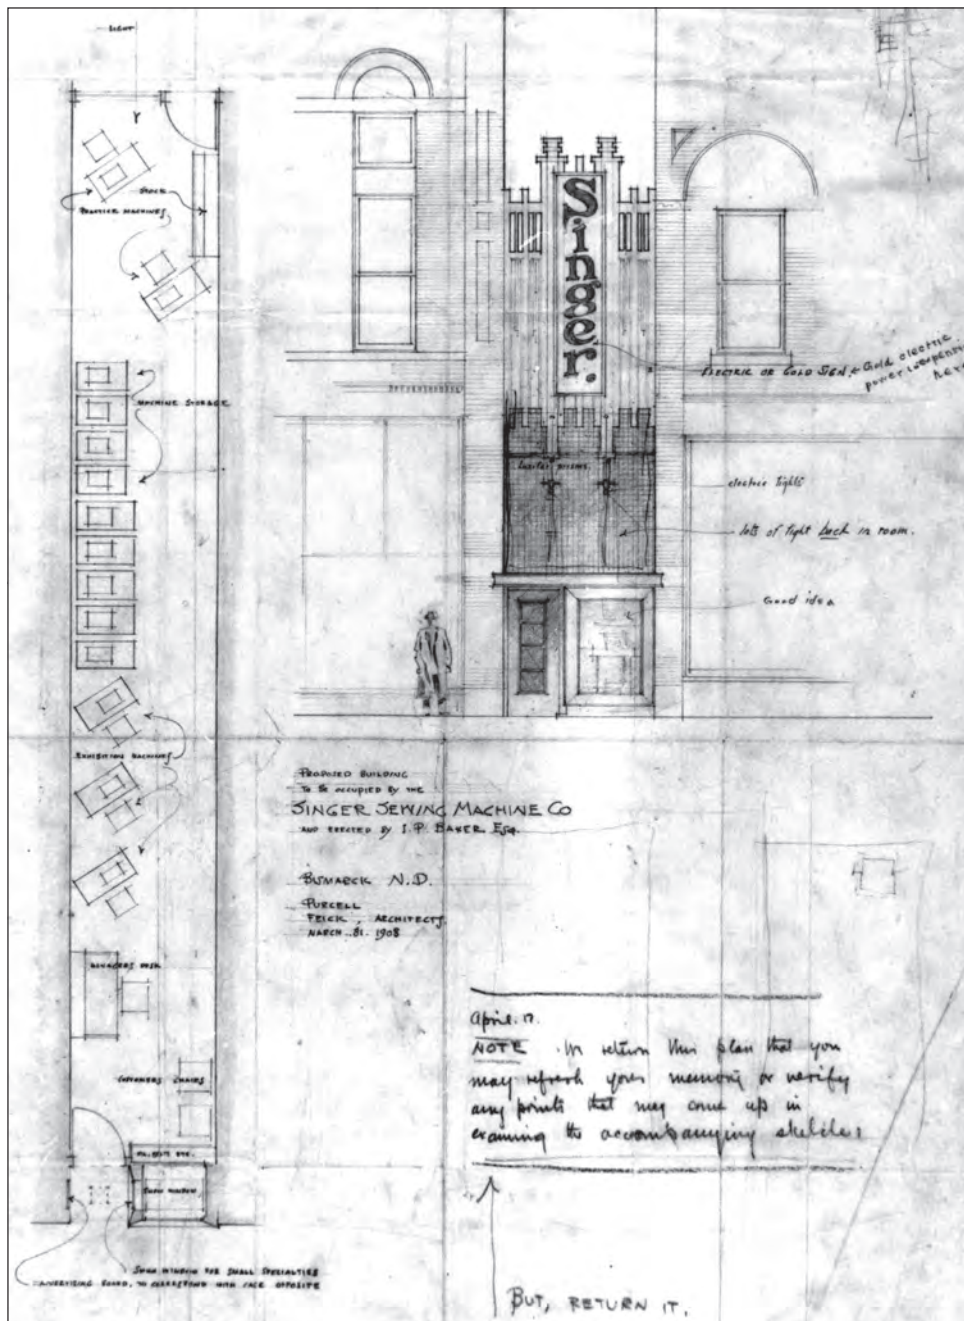 LIGHT
STOCK
PRACTICE MACHINES
MACHINE STORAGE
EXHIBITION MACHINES
MANAGERS DESK
CUSTOMERS CHAIRS
SHOW WINDOW
SHOW WINDOW FOR SMALL SPECIALTIES
ADVERTISING BOARD, TO CORRESPOND WITH CASE OPPOSITE
Singer.
ELECTRIC OR GOLD SIGN. Gold electric
power
here
Luxfer prisms.
electric lights
lots of light back in room.
Good idea
PROPOSED BUILDING
TO BE OCCUPIED BY THE
SINGER SEWING MACHINE CO
AND ERECTED BY I. P. BAKER ESQ.
BISMARCK N.D.
PURCELL
FEICK, ARCHITECTS.
MARCH..31. 1908
April. 17.
NOTE We return this plan that you
may refresh your memory or verify
any points that may come up in
examining the accompanying sketches
BUT, RETURN IT.